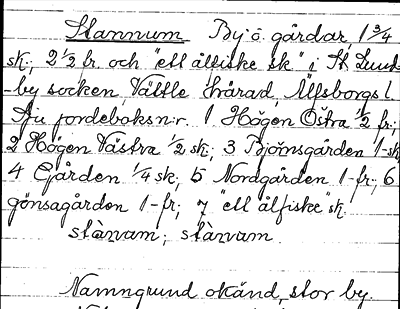 Stannum By: ö. gårdar, 1 3/4
sk; 2 1/2 fr. och "ett ålfiske sk" i St. Lund-
-by socken Vättle härad, Älfsborgs l.
Äu jordeboksn:r. 1 Högen Östra 1/2 fr;
2 Högen Västra 1/2 sk; 3 Björnsgården 1-sk
4 Gården 1/4 sk; 5 Nordgården 1-fr; 6
Jönsagården 1-fr; 7 "ett ålfiske" sk.
stànam; stànvam
Namngrund okänd, stor by.